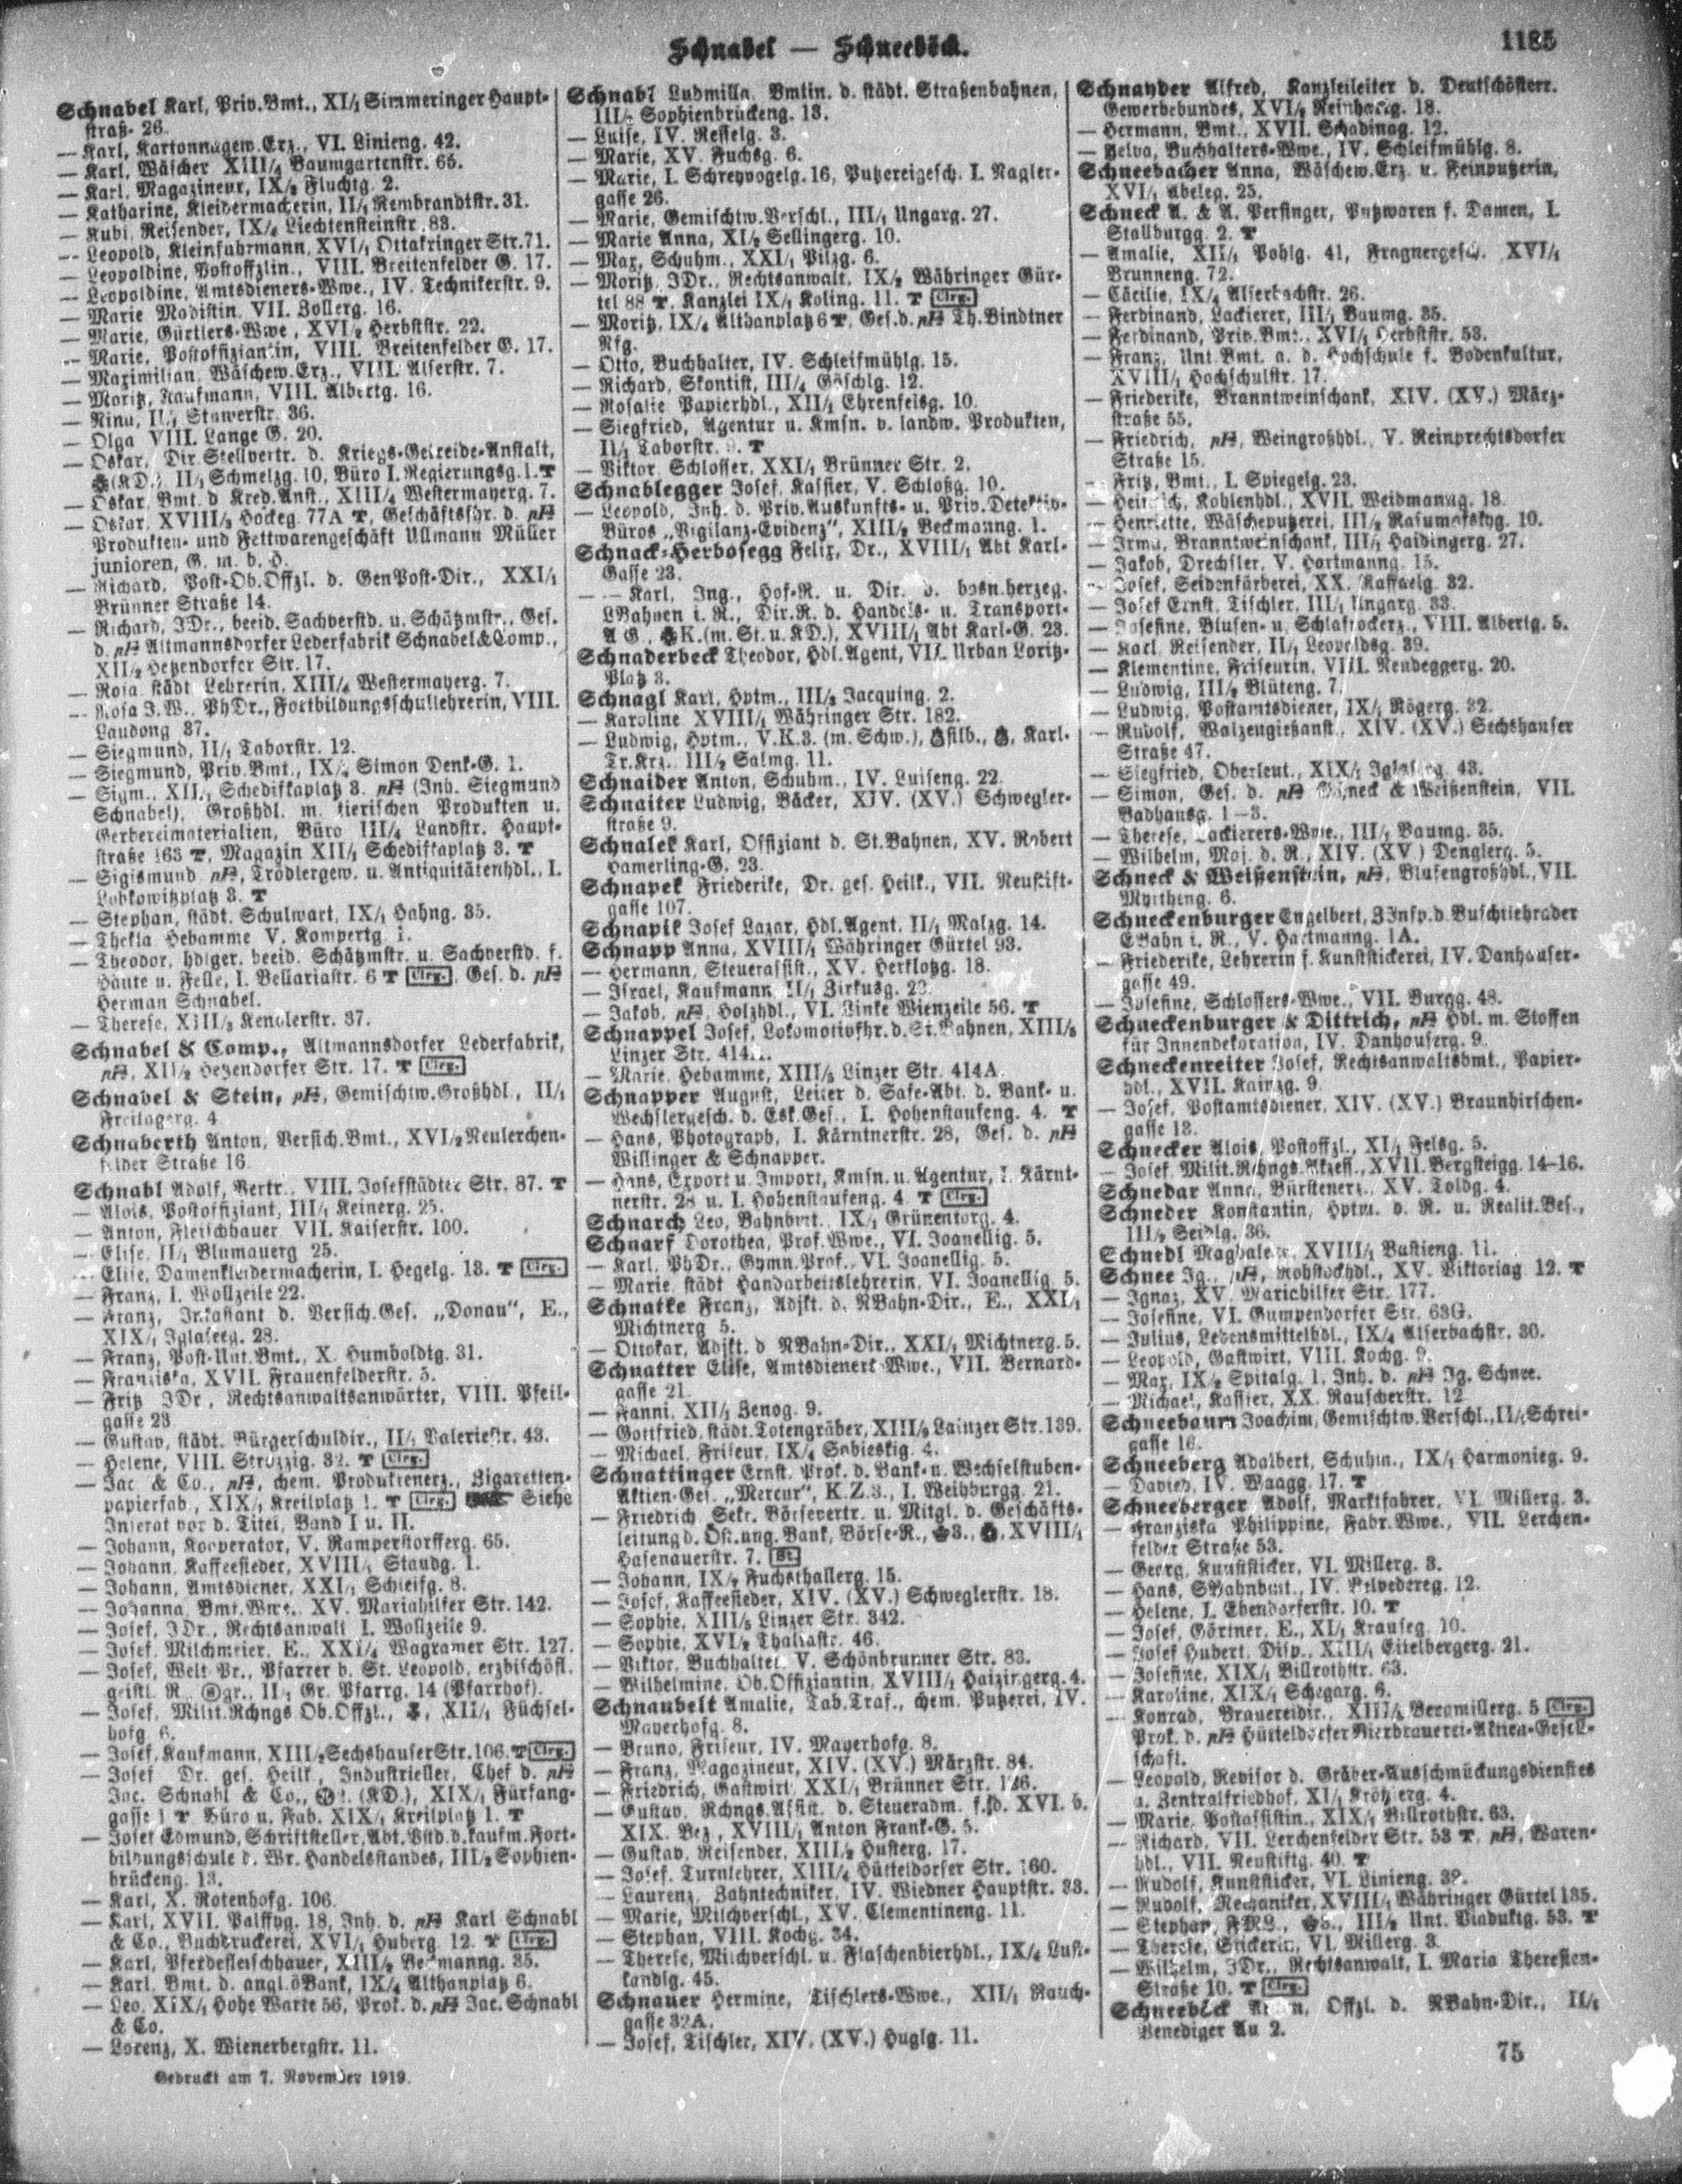 Schnabel — Schneeböck.
1185
Schnabel Karl, Priv.Bmt., XI/1 Simmeringer Haupt-
straß. 26.
— Karl, Kartonnagew.Erz., VI. Linieng. 42.
— Karl, Wäscher XIII/4 Baumgartenstr. 65.
— Karl, Magazineur, IX/2 Fluchtg. 2.
— Katharine, Kleidermacherin, II/1 Rembrandtstr. 31.
— Rubi, Reisender, IX/4 Liechtensteinstr. 83.
— Leopold, Kleinfuhrmann, XVI/1 Ottakringer Str. 71.
— Leopoldine, Postoffzlin., VIII. Breitenfelder G. 17.
— Leopoldine, Amtsdieners-Wwe., IV. Technikerstr. 9.
— Marie Modistin, VII. Zollerg. 16.
— Marie, Gürtlers-Wwe, XVI/2 Herbststr. 22.
— Marie, Postoffiziantin, VIII. Breitenfelder G. 17.
— Maximilian, Wäschew.Erz., VIII. Alserstr. 7.
— Moritz, Kaufmann, VIII. Albertg. 16.
— Nina, II/1 Stuwerstr. 36.
— Olga VIII. Lange G. 20.
— Oskar, Dir.Stellvertr. d. Kriegs-Getreide-Anstalt,
(KD.), II/1 Schmelzg. 10, Büro I. Regierungsg. 1. T
— Oskar, Bmt. d. Kred.Anst., XIII/4 Westermayerg. 7.
— Oskar, XVIII/3 Hockeg. 77A T, Geschäftsfhr. d. pH
Produkten- und Fettwarengeschäft Ullmann Müller
junioren, G. m. b. H.
— Richard, Post-Ob.Offzl. d. GenPost-Dir., XXI/1
Brünner Straße 14.
— Richard, JDr., beeid. Sachverstd. u. Schätzmstr., Ges.
d. pH Altmannsdorfer Lederfabrik Schnabel & Comp.,
XII/2 Hetzendorfer Str. 17.
— Rosa, städt. Lehrerin, XIII/4 Westermayerg. 7.
— Rosa J. W., PhDr., Fortbildungsschullehrerin, VIII.
Laudong. 37.
— Siegmund, II/1 Taborstr. 12.
— Siegmund, Priv.Bmt., IX/4 Simon Denk-G. 1.
— Sigm., XII/1 Schedifkaplatz 3. pH (Inh. Siegmund
Schnabel), Großhdl. m. tierischen Produkten u.
Gerbereimaterialien, Büro III/4 Landstr. Haupt-
straße 163 T, Magazin XII/1 Schedifkaplatz 3. T
— Sigismund pH, Trödlergew. u. Antiquitätenhdl., I.
Lobkowitzplatz 3. T
— Stephan, städt. Schulwart, IX/1 Hahng. 35.
— Thekla Hebamme V. Kompertg. 1.
— Theodor, hdlger. beeid. Schätzmstr. u. Sachverstd. f.
Häute u. Felle, I. Bellariastr. 6 T Clrg., Ges. d. pH
Herman Schnabel.
— Therese, XIII/3 Kendlerstr. 37.
Schnabel & Comp., Altmannsdorfer Lederfabrik,
pH, XII/2 Hetzendorfer Str. 17. T Clrg.
Schnabel & Stein, pH, Gemischtw.Großhdl., II/1
Freilagerg. 4.
Schnaberth Anton, Versich.Bmt., XVI/2 Neulerchen-
felder Straße 16.
Schnabl Adolf, Vertr., VIII. Josefstädter Str. 87. T
— Alois, Postoffiziant, III/1 Keinerg. 25.
— Anton, Fleischhauer, VII. Kaiserstr. 100.
— Elise, II/1 Blumauerg 25.
— Elise, Damenkleidermacherin, I. Hegelg. 13. T Clrg.
— Franz, I. Wollzeile 22.
— Franz, Inkassant d. Versich.Ges. „Donau“, E.,
XIX/1 Iglaseeg. 28.
— Franz, Post-Unt.Bmt., X. Humboldtg. 31.
— Franziska, XVII. Frauenfelderstr. 5.
— Fritz JDr, Rechtsanwaltsanwärter, VIII. Pfeil-
gasse 23
— Gustav, städt. Bürgerschuldir., II/1 Valeriestr. 43.
— Helene, VIII. Strozzig. 32. T Clrg.
— Jac & Co., pH, chem. Produktenerz., Zigaretten-
papierfab., XIX/1 Kreilplatz 1. T Clrg. Siehe
Inserat vor d. Titel, Band I u. II.
— Johann, Kooperator, V. Ramperstorfferg. 65.
— Johann, Kaffeesieder, XVIII/1 Staudg. 1.
— Johann, Amtsdiener, XXI/1 Schleifg. 8.
— Johanna, Bmt.Wwe., XV. Mariahilfer Str. 142.
— Josef, JDr., Rechtsanwalt I. Wollzeile 9.
— Josef, Milchmeier, E., XXI/4 Wagramer Str. 127.
— Josef, Welt Pr., Pfarrer b. St. Leopold, erzbischöfl.
geistl. R., gr., II/1 Gr. Pfarrg. 14 (Pfarrhof).
— Josef, Milit.Rchngs Ob.Offzl., XII/1 Füchsel-
hofg. 6.
— Josef, Kaufmann, XIII/2 Sechshauser Str. 106. T Clrg.
— Josef Dr. ges. Heilk., Industrieller, Chef d. pH
Jac. Schnabl & Co., (KD.), XIX/1 Fürfang-
gasse 1 T Büro u. Fab. XIX/1 Kreilplatz 1. T
— Josef Edmund, Schriftsteller, Abt. Vstd. d. kaufm. Fort-
bildungsschule d. Wr. Handelsstandes, III/2 Sophien-
brückeng. 13.
— Karl, X. Rotenhofg. 106.
— Karl, XVII. Palffyg. 18, Inh. d. pH Karl Schnabl
& Co., Buchdruckerei, XVI/1 Huberg. 12. T Clrg.
— Karl, Pferdefleischhauer, XIII/2 Beckmanng. 35.
— Karl, Bmt. d. angl.öBank, IX/4 Althanplatz 6.
— Leo, XIX/1 Hohe Warte 56, Prok. d. pH Jac. Schnabl
& Co.
— Lorenz, X. Wienerbergstr. 11.
Gedruckt am 7. November 1919.
Schnabl Ludmilla, Bmtin. d. städt. Straßenbahnen,
III/2 Sophienbrückeng. 13.
— Luise, IV. Resselg. 3.
— Marie, XV. Fuchsg. 6.
— Marie, I. Schreyvogelg. 16, Putzereigesch. I. Nagler-
gasse 26.
— Marie, Gemischtw.Verschl., III/1 Ungarg. 27.
— Marie Anna, XI/2 Sellingerg. 10.
— Max, Schuhm., XXI/1 Pilzg. 6.
— Moritz, JDr., Rechtsanwalt, IX/2 Währinger Gür-
tel 88 T, Kanzlei IX/1 Koling. 11. T Clrg.
— Moritz, IX/4 Althanplatz 6 T, Ges. d. pH Th. Bindtner
Nfg.
— Otto, Buchhalter, IV. Schleifmühlg. 15.
— Richard, Skontist, III/4 Göschlg. 12.
— Rosalie Papierhdl., XII/1 Ehrenfelsg. 10.
— Siegfried, Agentur u. Kmsn. v. landw. Produkten,
II/1 Taborstr. 9. T
— Viktor, Schlosser, XXI/1 Brünner Str. 2.
Schnablegger Josef, Kassier, V. Schloßg. 10.
— Leopold, Inh. d. Priv.Auskunfts- u. Priv.Detektiv-
Büros „Vigilanz-Evidenz“, XIII/2 Beckmanng. 1.
Schnack-Herbosegg Felix, Dr., XVIII/1 Abt Karl-
Gasse 23.
— — Karl, Ing., Hof-R. u. Dir. d. bosn.herzeg.
LBahnen i. R., Dir.R. d. Handels- u. Transport-
A G., K.(m. St. u. KD.), XVIII/1 Abt Karl-G. 23.
Schnaderbeck Theodor, Hdl.Agent, VII. Urban Loritz-
Platz 3.
Schnagl Karl, Hptm., III/2 Jacquing. 2.
— Karoline XVIII/1 Währinger Str. 182.
— Ludwig, Hptm., V.K.3. (m. Schw.), silb., Karl-
Tr.Krz., III/2 Salmg. 11.
Schnaider Anton, Schuhm., IV. Luiseng. 22.
Schnaiter Ludwig, Bäcker, XIV. (XV.) Schwegler-
straße 9.
Schnalek Karl, Offiziant d. St.Bahnen, XV. Robert
Hamerling-G. 23.
Schnapek Friederike, Dr. ges. Heilk., VII. Neustift-
gasse 107.
Schnapik Josef Lazar, Hdl.Agent, II/1 Malzg. 14.
Schnapp Anna, XVIII/1 Währinger Gürtel 93.
— Hermann, Steuerassist., XV. Herklotzg. 18.
— Israel, Kaufmann, II/1 Zirkusg. 23.
— Jakob, pH, Holzhdl., VI. Linke Wienzeile 56. T
Schnappel Josef, Lokomotivfhr. d. St.Bahnen, XIII/5
Linzer Str. 414A.
— Marie, Hebamme, XIII/5 Linzer Str. 414A.
Schnapper August, Leiter d. Safe-Abt. d. Bank- u.
Wechslergesch. d. Esk.Ges., I. Hohenstaufeng. 4. T
— Hans, Photograph, I. Kärntnerstr. 28, Ges. d. pH
Willinger & Schnapper.
— Hans, Export u. Import, Kmsn. u. Agentur, I. Kärnt-
nerstr. 28 u. I. Hohenstaufeng. 4. T Clrg.
Schnarch Leo, Bahnbmt., IX/1 Grünentorg. 4.
Schnarf Dorothea, Prof.Wwe., VI. Joanellig. 5.
— Karl, PhDr., Gymn.Prof., VI. Joanellig. 5.
— Marie, städt Handarbeitslehrerin, VI. Joanellig. 5.
Schnatke Franz, Adjkt. d. NBahn-Dir., E., XXI/1
Michtnerg 5.
— Ottokar, Adjkt. d NBahn-Dir., XXI/1 Michtnerg. 5.
Schnatter Elise, Amtsdieners Wwe., VII. Bernard-
gasse 21.
— Fanni, XII/1 Zenog. 9.
— Gottfried, städt. Totengräber, XIII/2 Lainzer Str. 139.
— Michael, Friseur, IX/4 Sobieskig. 4.
Schnattinger Ernst, Prok. d. Bank- u. Wechselstuben-
Aktien-Ges. „Mercur“, K.Z.3., I. Weihburgg. 21.
— Friedrich, Sekr. Börsevertr. u. Mitgl. d. Geschäfts-
leitung d. Öst.ung. Bank, Börse-R., 3., XVIII/1
Hasenauerstr. 7. St.
— Johann, IX/2 Fuchsthallerg. 15.
— Josef, Kaffeesieder, XIV. (XV.) Schweglerstr. 18.
— Sophie, XIII/5 Linzer Str. 342.
— Sophie, XVI/2 Thaliastr. 46.
— Viktor, Buchhalter, V. Schönbrunner Str. 83.
— Wilhelmine, Ob.Offiziantin, XVIII/1 Haizingerg. 4.
Schnaubelt Amalie, Tab.Traf., chem. Putzerei, IV.
Mayerhofg. 8.
— Bruno, Friseur, IV. Mayerhofg. 8.
— Franz, Magazineur, XIV. (XV.) Märzstr. 84.
— Friedrich, Gastwirt XXI/1 Brünner Str. 126.
— Gustav, Rchngs.Assist. d. Steueradm. f. d. XVI. b.
XIX. Bez., XVIII/1 Anton Frank-G. 5.
— Gustav, Reisender, XIII/2 Husterg. 17.
— Josef, Turnlehrer, XIII/4 Hütteldorfer Str. 160.
— Laurenz, Zahntechniker, IV. Wiedner Hauptstr. 33.
— Marie, Milchverschl., XV. Clementineng. 11.
— Stephan, VIII. Kochg. 34.
— Therese, Milchverschl. u. Flaschenbierhdl., IX/4 Lust-
kandlg. 45.
Schnauer Hermine, Tischlers-Wwe., XII/1 Rauch-
gasse 32A.
— Josef, Tischler, XIV. (XV.) Huglg. 11.
Schnayder Alfred, Kanzleileiter d. Deutschösterr.
Gewerbebundes, XVI/2 Reinharzg. 18.
— Hermann, Bmt., XVII. Schadinag. 12.
— Helva, Buchhalters-Wwe., IV. Schleifmühlg. 8.
Schneebacher Anna, Wäschew.Erz. u. Feinputzerin,
XVI/1 Abeleg. 25.
Schneck A. & A. Persinger, Putzwaren f. Damen, I.
Stallburgg. 2. T
— Amalie, XII/1 Pohlg. 41, Fragnergesch. XVI/1
Brunneng. 72.
— Cäcilie, IX/4 Alserbachstr. 26.
— Ferdinand, Lackierer, III/1 Baumg. 35.
— Ferdinand, Priv.Bmt., XVI/1 Herbststr. 53.
— Franz, Unt.Bmt. a. d. Hochschule f. Bodenkultur,
XVIII/1 Hochschulstr. 17.
— Friederike, Branntweinschank, XIV. (XV.) März-
straße 55.
— Friedrich, pH, Weingroßhdl., V. Reinprechtsdorfer
Straße 15.
— Fritz, Bmt., I. Spiegelg. 23.
— Heinrich, Kohlenhdl., XVII. Weidmanng. 18.
— Henriette, Wäscheputzerei, III/2 Rasumofskyg. 10.
— Irma, Branntweinschank, III/1 Haidingerg. 27.
— Jakob, Drechsler, V. Hartmanng. 15.
— Josef, Seidenfärberei, XX. Raffaelg. 32.
— Josef Ernst, Tischler, III/1 Ungarg. 33.
— Josefine, Blusen- u. Schlafrockerz., VIII. Albertg. 5.
— Karl, Reisender, II/1 Leopoldsg. 39.
— Klementine, Friseurin, VIII. Neudeggerg. 20.
— Ludwig, III/2 Blüteng. 7.
— Ludwig, Postamtsdiener, IX/1 Rögerg. 32.
— Rudolf, Walzengießanst., XIV. (XV.) Sechshauser
Straße 47.
— Siegfried, Oberleut., XIX/1 Iglaseeg. 43.
— Simon, Ges. d. pH Schneck & Weißenstein, VII.
Badhausg. 1–3.
— Therese, Lackierers-Wwe., III/1 Baumg. 35.
— Wilhelm, Maj. d. R., XIV. (XV.) Denglerg. 5.
Schneck & Weißenstein, pH, Blusengroßhdl., VII.
Myrtheng. 6.
Schneckenburger Engelbert, ZInsp. d. Buschtiehrader
EBahn i. R., V. Hartmanng. 1A.
— Friederike, Lehrerin f. Kunststickerei, IV. Danhauser-
gasse 49.
— Josefine, Schlossers-Wwe., VII. Burgg. 48.
Schneckenburger & Dittrich, pH Hdl. m. Stoffen
für Innendekoration, IV. Danhauserg. 9.
Schneckenreiter Josef, Rechtsanwaltsbmt., Papier-
hdl., XVII. Kainzg. 9.
— Josef, Postamtsdiener, XIV. (XV.) Braunhirschen-
gasse 18.
Schnecker Alois, Postoffzl., XI/1 Felsg. 5.
— Josef, Milit.Rchngs.Akzess., XVII. Bergsteigg. 14–16.
Schnedar Anna, Bürstenerz., XV. Toldg. 4.
Schneder Konstantin, Hptm. d. R. u. Realit.Bes.,
III/1 Seidlg. 36.
Schnedl Magdalena, XVIII/1 Bastieng. 11.
Schnee Ig., pH, Rohstockhdl., XV. Viktoriag 12. T
— Ignaz, XV Mariahilfer Str. 177.
— Josefine, VI. Gumpendorfer Str. 63G.
— Julius, Lebensmittelhdl., IX/4 Alserbachstr. 30.
— Leopold, Gastwirt, VIII. Kochg. 9.
— Max, IX/2 Spitalg. 1, Inh. d. pH Ig. Schnee.
— Michael, Kassier, XX. Rauscherstr. 12
Schneebaum Joachim, Gemischtw.Verschl., II/1 Schrei-
gasse 16.
Schneeberg Adalbert, Schuhm., IX/1 Harmonieg. 9.
— David, IV. Waagg. 17. T
Schneeberger Adolf, Marktfahrer, VI. Millerg. 3.
— Franziska Philippine, Fabr.Wwe., VII. Lerchen-
felder Straße 53.
— Georg, Kunststicker, VI. Millerg. 3.
— Hans, SBahnbmt., IV. Belvedereg. 12.
— Helene, I. Ebendorferstr. 10. T
— Josef, Görtner, E., XI/1 Krauseg. 10.
— Josef Hubert, Disp., XIII/1 Eitelbergerg. 21.
— Josefine, XIX/1 Billrothstr. 63.
— Karoline, XIX/1 Schegarg. 6.
— Konrad, Brauereidir., XIII/4 Bergmillerg. 5 Clrg.
Prok. d. pH Hütteldorfer Bierbrauerei-Aktien-Gesell-
schaft.
— Leopold, Revisor d. Gräber-Ausschmückungsdienstes
a. Zentralfriedhof, XI/1 Krötzlerg. 4.
— Marie, Postassistin., XIX/1 Billrothstr. 63.
— Richard, VII. Lerchenfelder Str. 53 T, pH, Waren-
hdl., VII. Neustiftg. 40. T
— Rudolf, Kunststicker, VI. Linieng. 39.
— Rudolf, Mechaniker, XVIII/1 Währinger Gürtel 135.
— Stephan, FML., III/2 Unt. Viaduktg. 53. T
— Therese, Stickerin, VI. Millerg. 3.
— Wilhelm, JDr., Rechtsanwalt, I. Maria Theresien-
Straße 10. T Clrg.
Schneeböck Offzl. d. NBahn-Dir., II/1
Venediger Au 2.
75